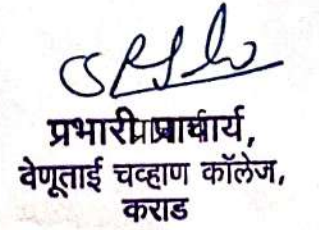 प्रभारी प्राचार्य,
वेणूताई चव्हाण कॉलेज,
कराड